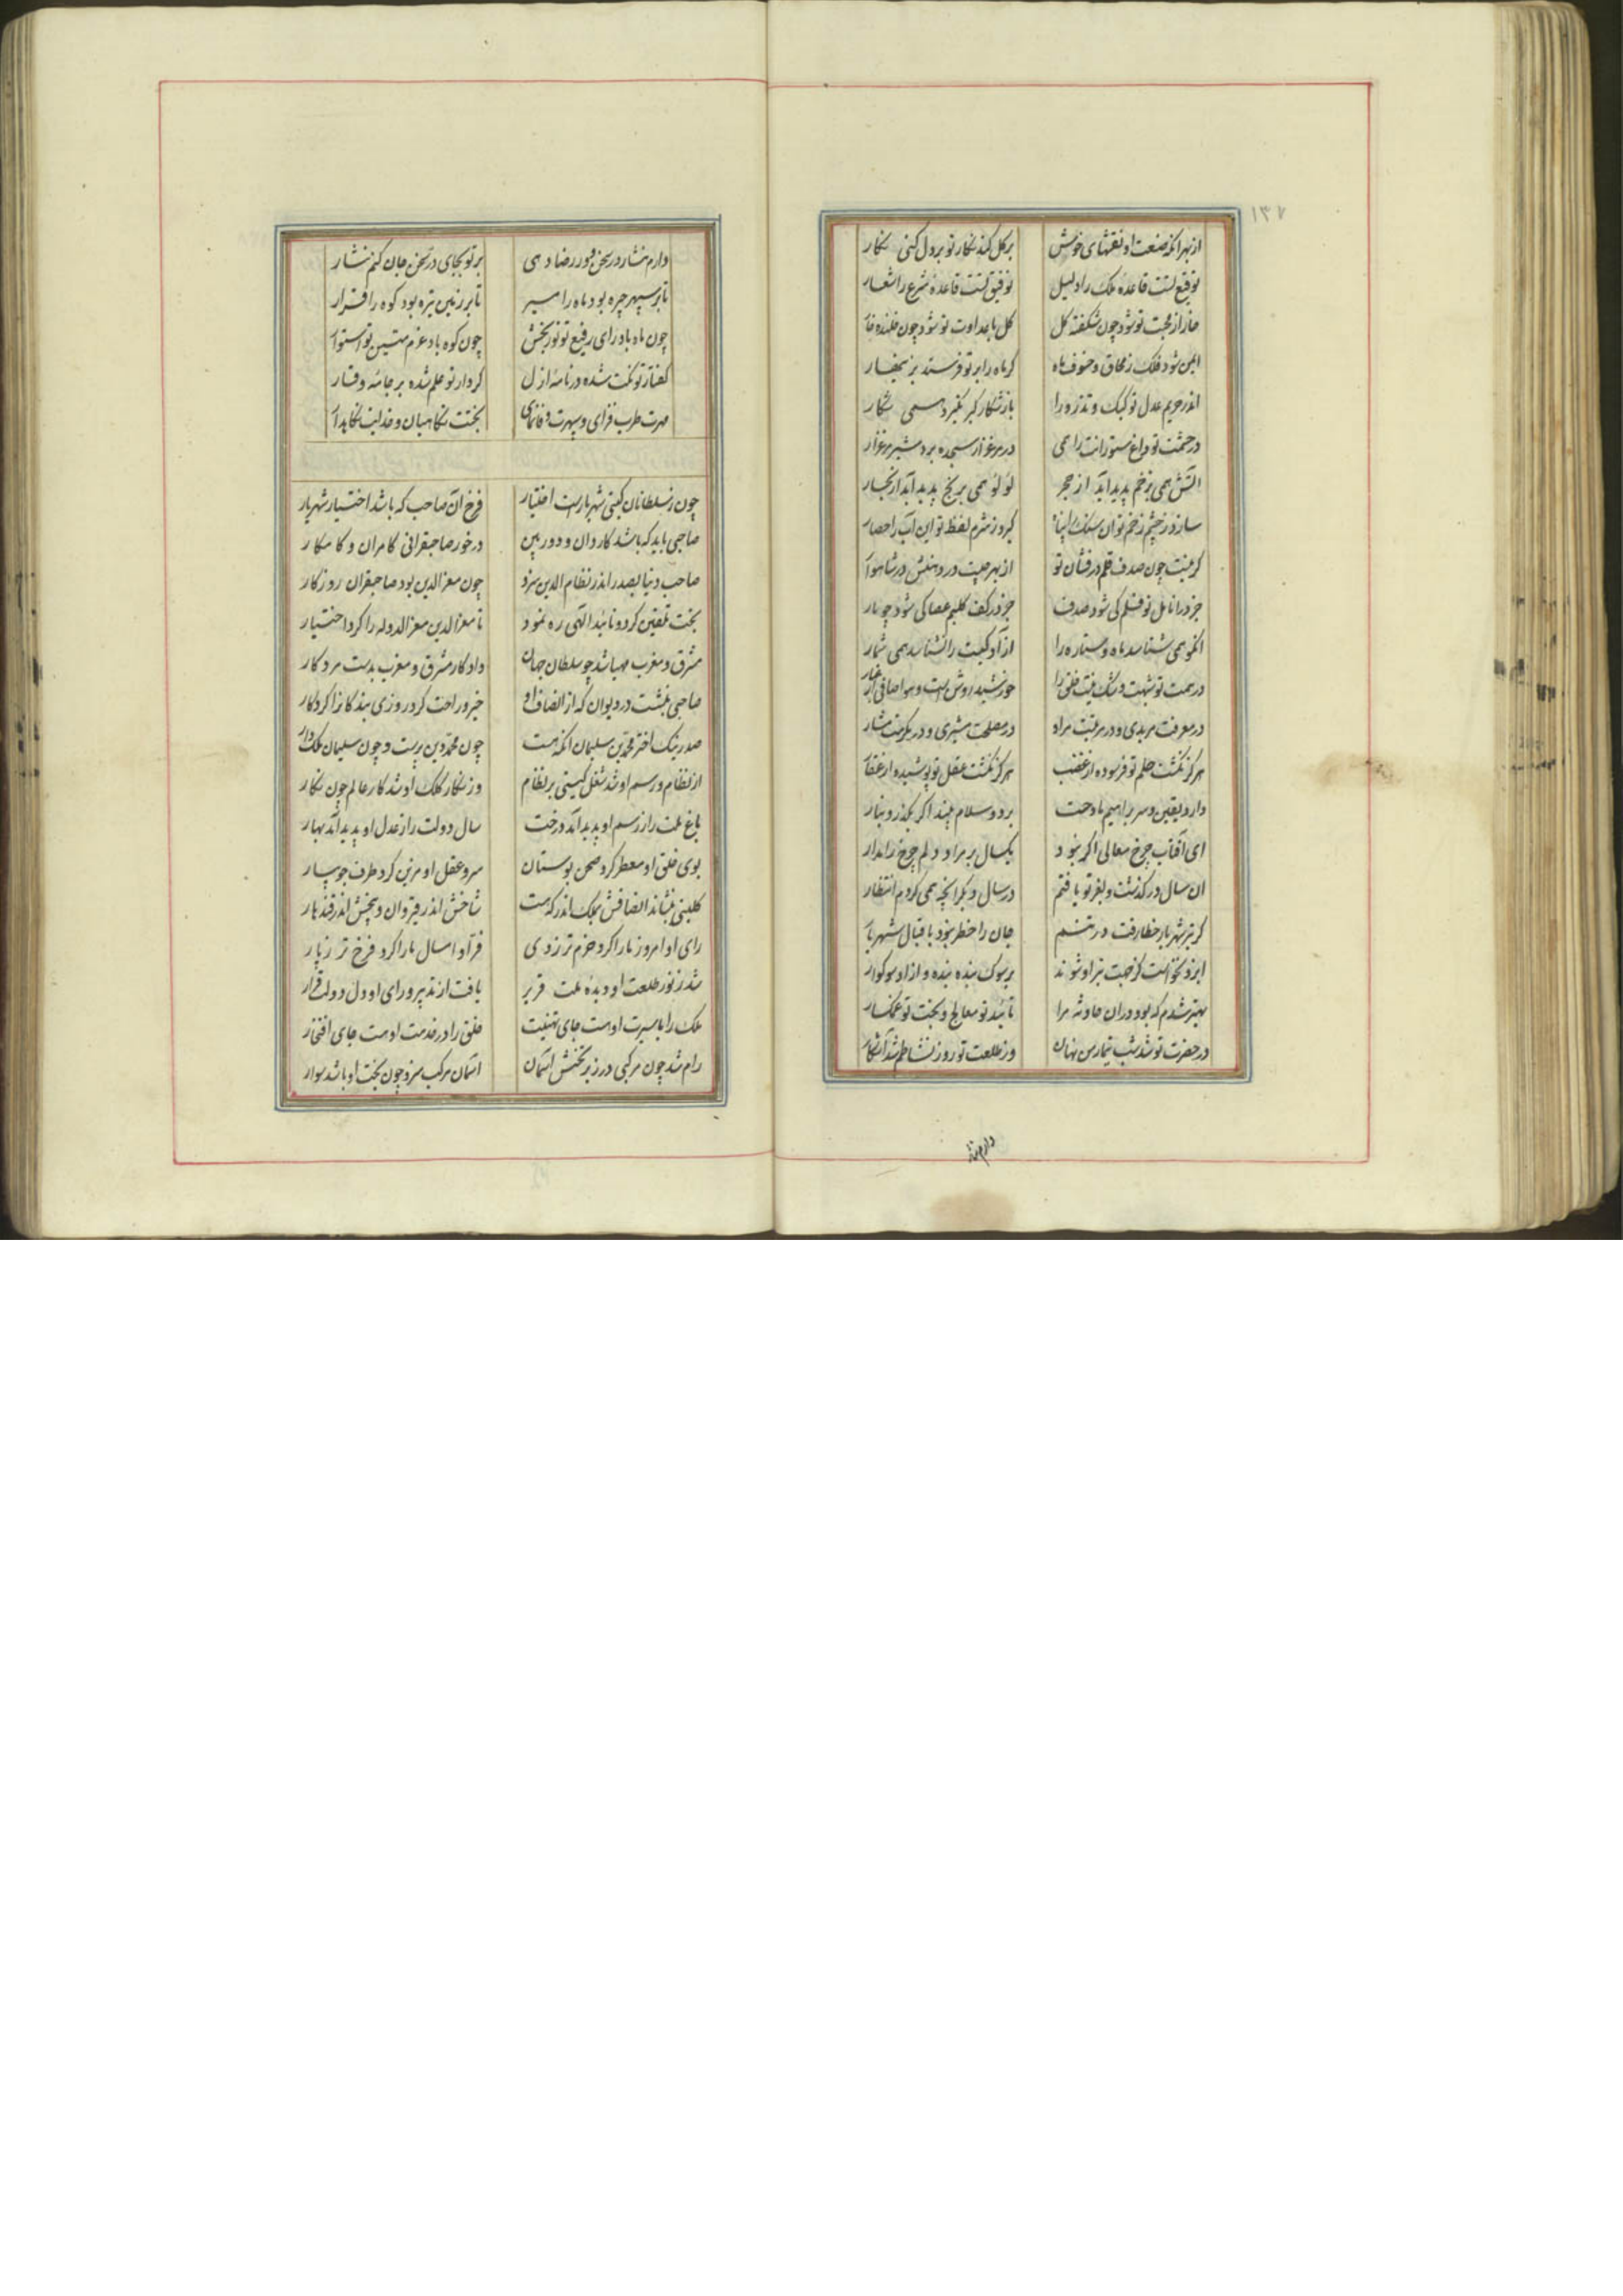 ۱۳۷
از بهر آنکه صنعت او نقشهای خوش بر گل کند نگار تو بر دل کنی نگار
توقیع تست قاعدهٔ ملک را دلیل توفیق تست قاعدهٔ شرع را شعار
خار از محبت تو شود چون شکفته گل گل با عداوت تو شود چون خلنده خار
ایمن شود فلک ز محاق و خسوف ماه گر ماه را بر تو فرستد بزینهار
اندر حریم عدل تو کبک و تذرو را باز شکار گیر نگیرد همی شکار
در حشمت تو داغ ستورانت را همی در مرغزار سجده برد شیر مرغزار
آتش همی بزخم پدید آید از حجر لؤلؤ همی برنج پدید آید از بحار
سازد ز چشم زخم تو آن سنگ را پناه گیرد ز شرم لفظ تو این آب را حصار
گر نیست چون صدف قلم درفشان تو از بهر چیست در دهنش در شاهوار
جز در انامل تو قلم کی شود صدف جز در کف کلیم عصا کی شود چو مار
آنکو همی شناسد ماه و ستاره را از آدمیت را نشناسد همی شمار
در همت تو شبهت و شک نیست خلق را خورشید روشن است و هوا صافی از غبار
در معرفت مریدی و در مرتبت مراد در مصلحت مشیری و در مکرمت مشار
هرگز نگشت حلم تو فرسوده از غضب هرگز نگشت عقل تو پوشیده از عقار
دارد یقین و سر براهیم مادحت برد و سلام بیند اگر بگذرد بنار
ای آفتاب چرخ معالی اگر نبود یکسال بر مراد دلم چرخ را مدار
آن سال درگذشت و بفر تو یافتم در سال دیگر آنچه همی کردم انتظار
گر تیر شهریار خطا رفت در تنم جان را خطر نبود باقبال شهریار
ایزد نخواست کز جهت تیر او شوند بر سوک بنده بنده و آزاد سوکوار
بهتر شدم که بود در آن حادثه مرا تایید تو معالج و بخت تو غمگسار
در حضرت تو شد شب تیمار من نهان وز طلعت تو روز نشاطم شد آشکار
دارم نثار
دارم نثار در سخن و در رضا دهی بر تو بجای در سخن جان کنم نثار
تا بر سپهر چیره بود ماه را مسیر تا بر زمین تیره بود کوه را قرار
چون ماه باد رای رفیع تو نوربخش چون کوه باد عزم متین تو استوار
گفتار تو نکت شده در نامهٔ ازل کردار تو علم شده بر جامهٔ وقار
مهرت طرب فزای و سپهرت وفانمای بختت نگاهبان و خدایت نگاهدار
چون ز سلطانان گیتی شهریارست اختیار فرخ آن صاحب که باشد اختیار شهریار
صاحبی باید که باشد کاردان و دوربین درخور صاحبقرانی کامران و کامکار
صاحب دنیا بصدر اندر نظام الدین سزد چون معزالدین بود صاحبقران روزگار
بخت تلقین کرد و تایید الهی ره نمود تا معزالدین معزالدوله را کرد اختیار
مشرق و مغرب مهیا شد چو سلطان جهان داد کار مشرق و مغرب بدست مرد کار
صاحبی بنشست در دیوان که از انصاف او خیر و راحت کرد روزی بندگانرا کردگار
صدر نیک اختر محمد بن سلیمان آنکه هست چون محمد دین پرست و چون سلیمان ملک دار
از نظام و رسم او شد شغل گیتی بر نظام وز نگار کلک او شد کار عالم چون نگار
باغ ملت را ز رسم او پدید آمد درخت سال دولت را ز عدل او پدید آمد بهار
بوی خلق او معطر کرد صحن بوستان سرو عقل او مزین کرد طرف جویبار
گلبنی بنشاند انصافش بملک اندر که هست شاخش اندر قیروان و بیخش اندر قندهار
رای او امروز ما را کرد خرم تر ز دی فر او امسال ما را کرد فرخ تر ز پار
شد ز نور طلعت او دیدهٔ ملت قریر یافت از تدبیر و رای او دل دولت قرار
ملک را با سیرت او هست جای تهنیت خلق را در خدمت او هست جای افتخار
رام شد چون مرکبی در زیر بختش آسمان آسمان مرکب سزد چون بخت او باشد سوار